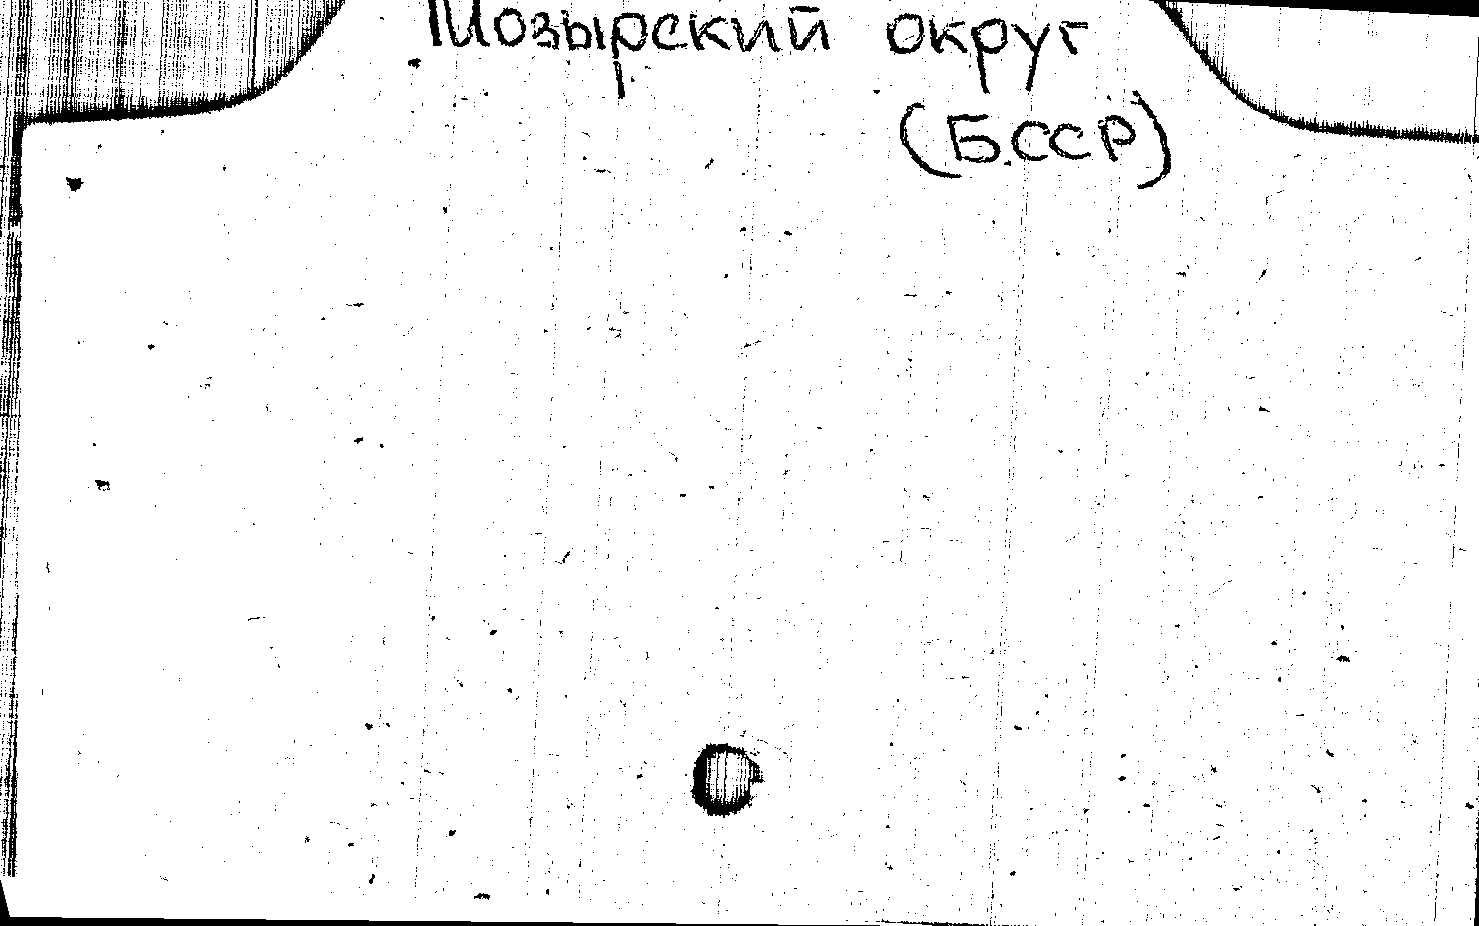 Мозырский округ
(БССР)